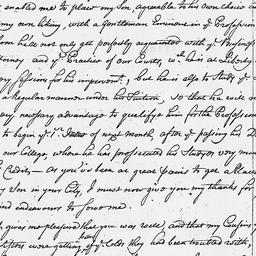 enabled me to place my Son agreable to his own choice
my own liking, with a Gentleman Eminent in yᵉ Profession
he'll not only get perfectly acquainted with yᵉ Business
& yᵉ Practice of our Courts, wᶜʰ he is at Liberty
my for his improvemᵗ; but he is also to Study yᵉ
a Regular manner under his Tuition, so that he will
any necessary advantage to qualifie him for the Profession
to begin yᵉ 1ˢᵗ of next month, after yᵉ passing his
our College, where he has prosecuted his Studys very
Credit, — As you've been at great pains to get a
my Son in your City, I must now give you my thanks for
kind endeavours to serve me.
It gives me pleasure that you was well, and that my Cousins
Sisters were getting of yᵉ Colds they had been troubled with,